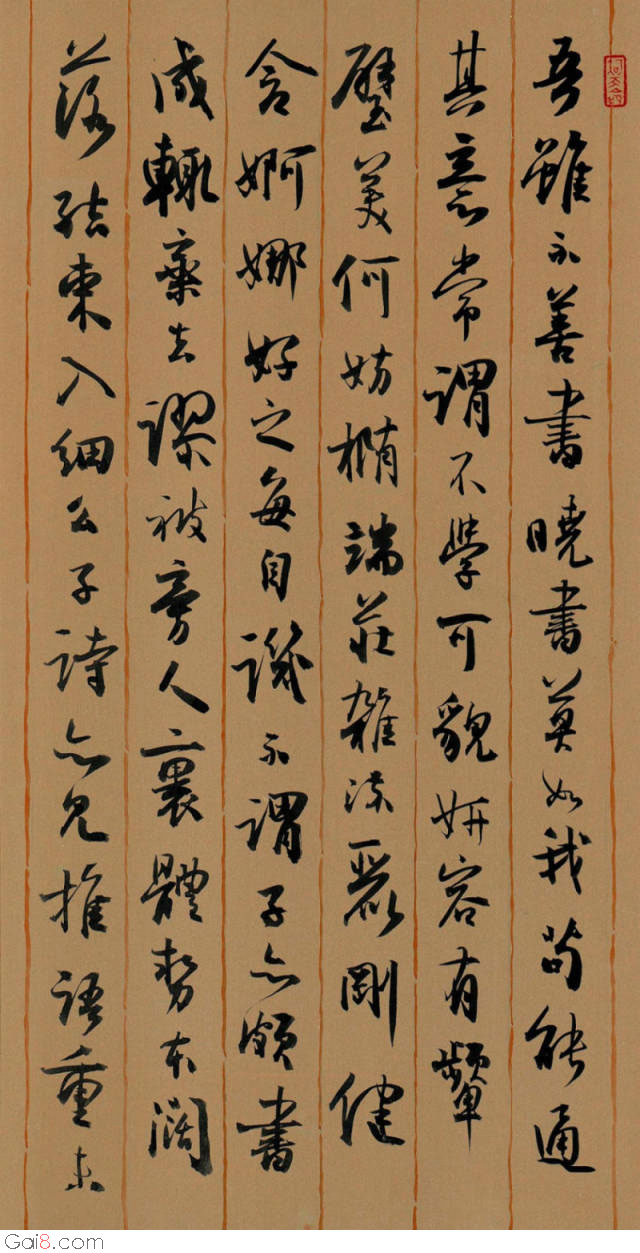 吾雖不善書曉書莫如我苟能通
其意常謂不學可貌妍容有顰
璧美何妨橢端莊雜流麗剛健
含婀娜好之每自譏不謂子亦頗書
成輒棄去謬被旁人裹體勢本闊
落結束入細么子詩亦見推語重未
Gai8.com